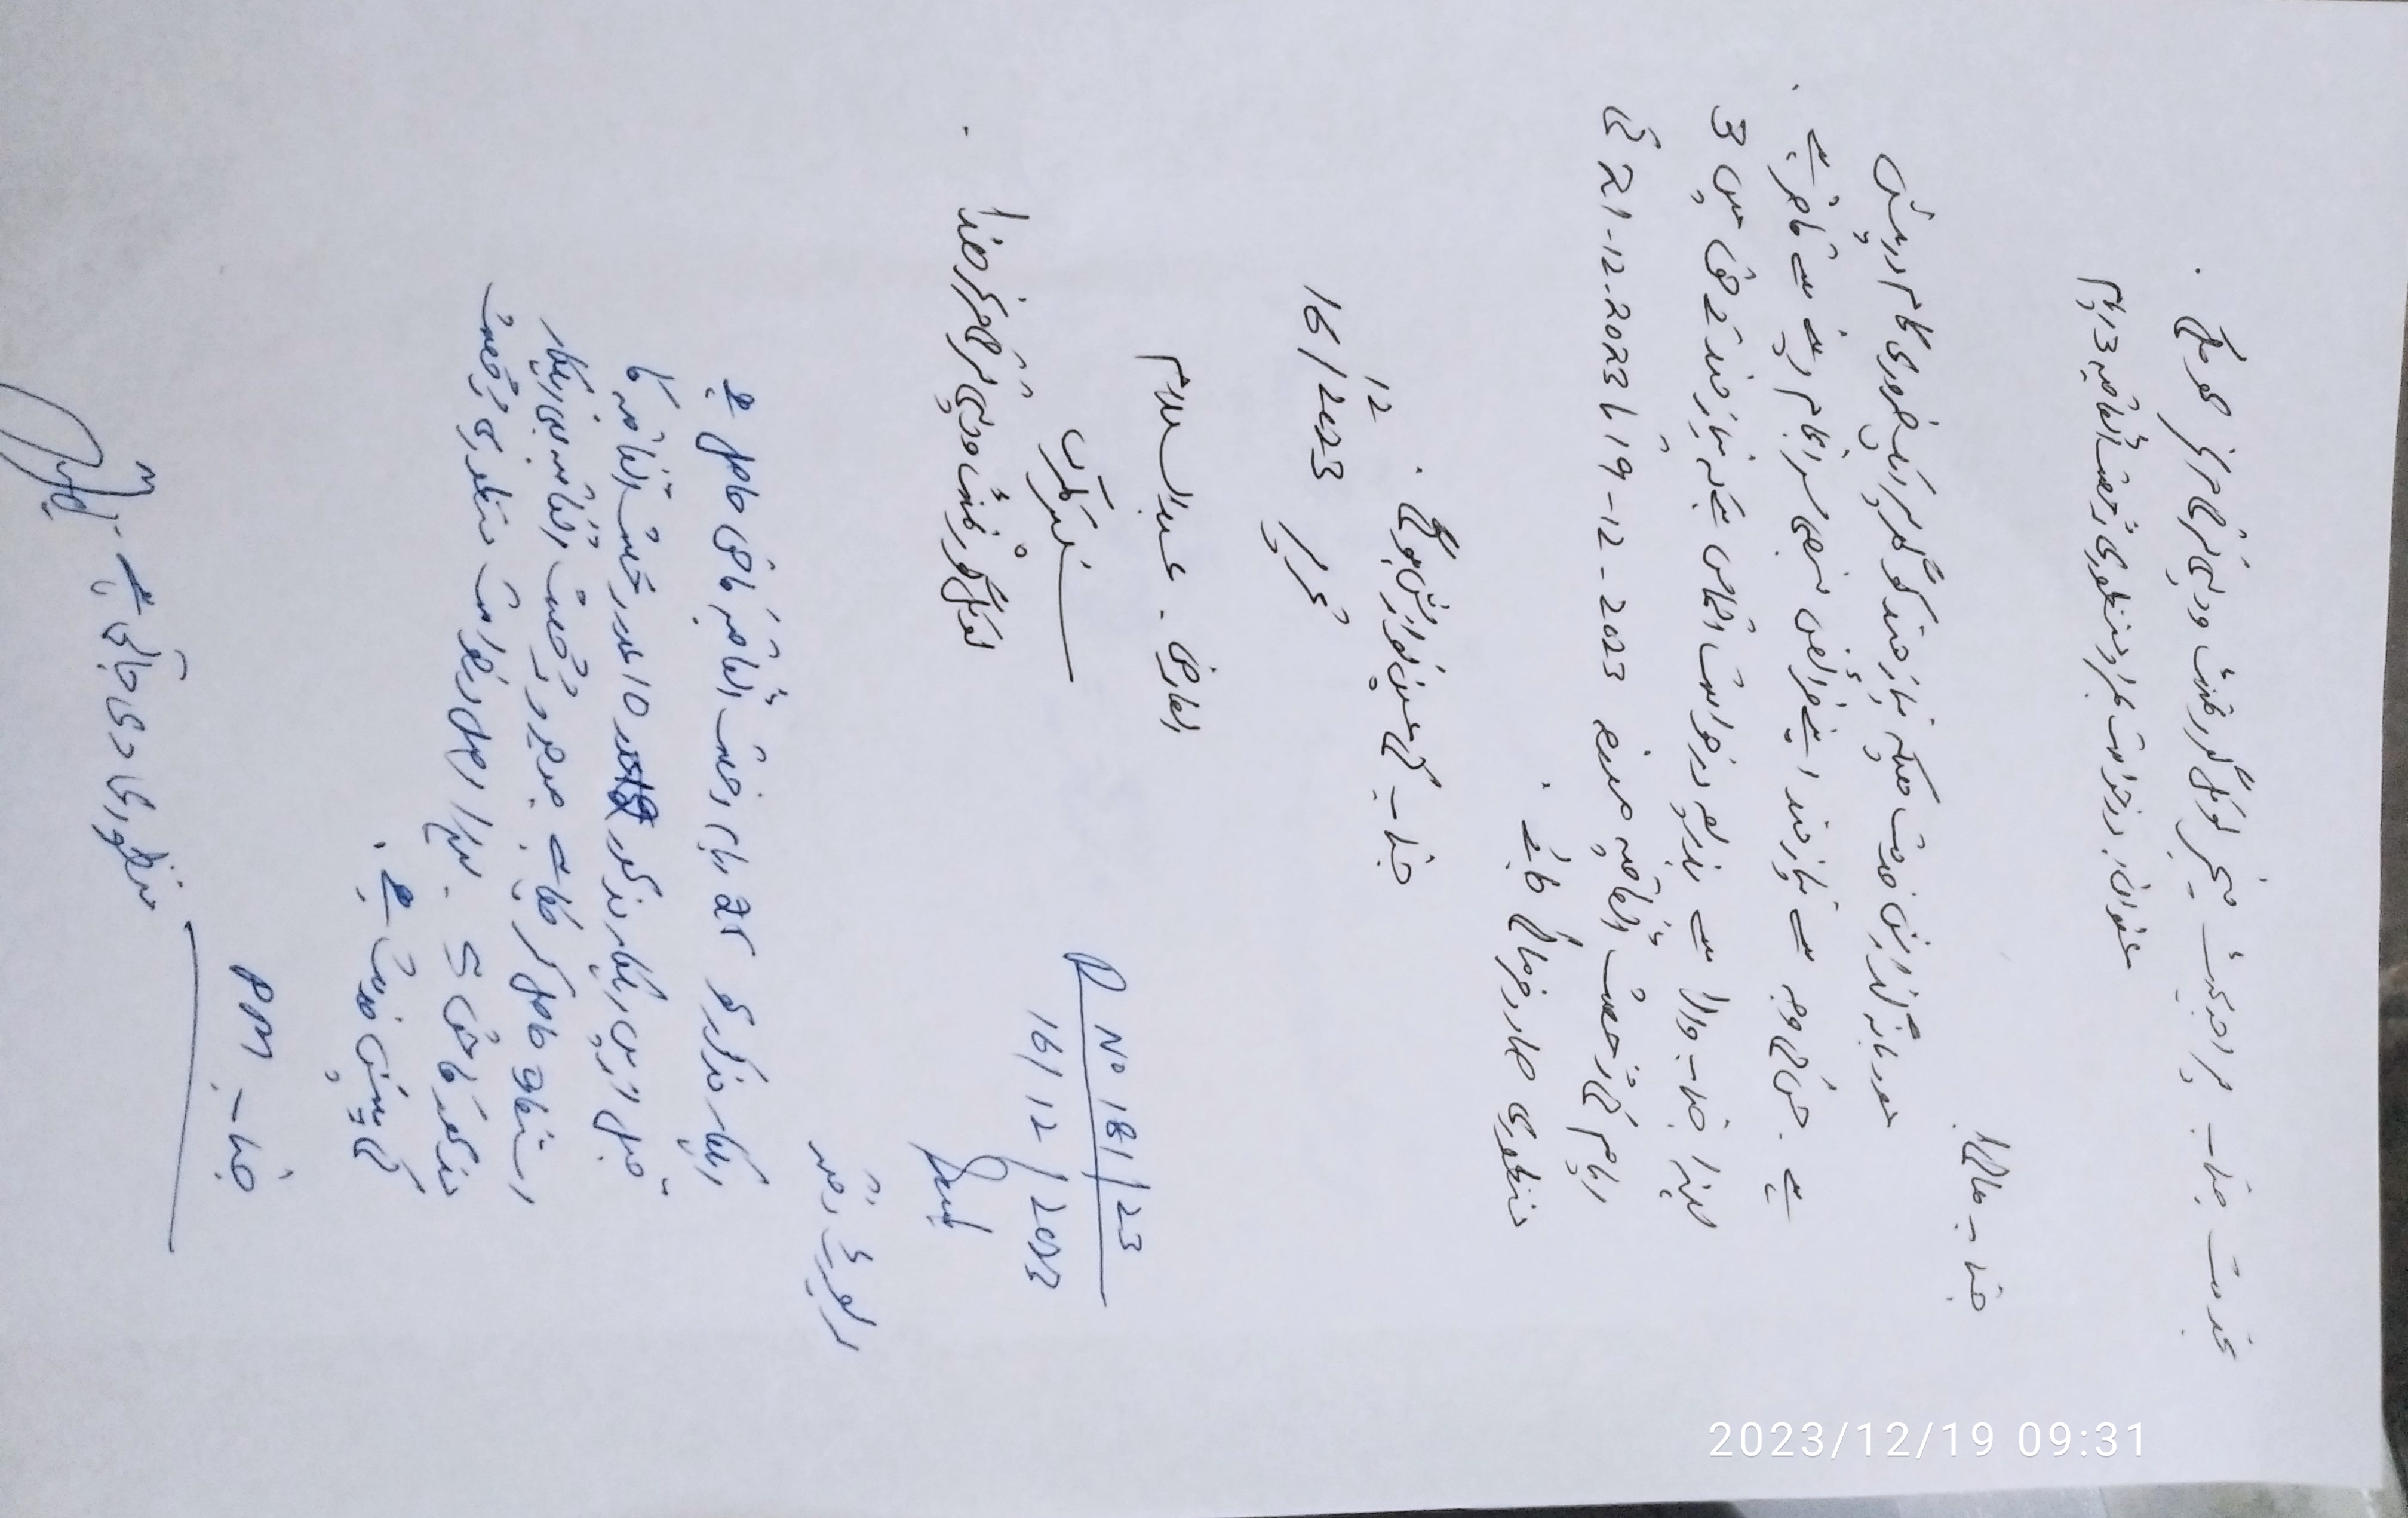 بخدمت جناب پراجیکٹ مینجر لوکل گورنمنٹ و دیہی ترقی مرکز
عنوان: درخواست بمراد منظوری رُخصت اتفاقیہ 3 ایام
جناب عالی!
مودبانہ گذارش خدمت ہیکہ نیاز مند کو گھر پر ایک ضروری کام درپیش
ہے۔ جس کی وجہ سے نیاز مند اپنے فرائض منصبی سر انجام دینے سے قاصر ہے۔
لہذا جناب والا سے بذریعہ درخواست التماس ہے کہ نیاز مند کے حق میں 3
ایام کی رُخصت اتفاقیہ مورخہ 19-12-2023 تا 21-12-2023 کی
منظوری صادر فرمائی جائے۔
جناب کی عین نوازش ہوگی۔
تحریر 16/12/2023
العارض۔ عبدالسلام
سینئر کلرک
لوکل گورنمنٹ و دیہی ترقی مرکز ھذا۔
D No 181/23
16/12/2023
رپورٹ دفتر
اہلکار مذکور کو 25 ایام رخصت اتفاقیہ کا حق حاصل ہے
قبل ازیں اہلکار مذکور 10 عدد رخصت اتفاقیہ کا
استفادہ حاصل کر چکا ہے رُخصت اتفاقیہ اہلکار
مذکور کا حق ہے۔ لہذا اصل درخواست منظوری رُخصت
کی پیش خدمت ہے۔
جناب PM
منظوری دی جاتی ہے۔
2023/12/19 09:31